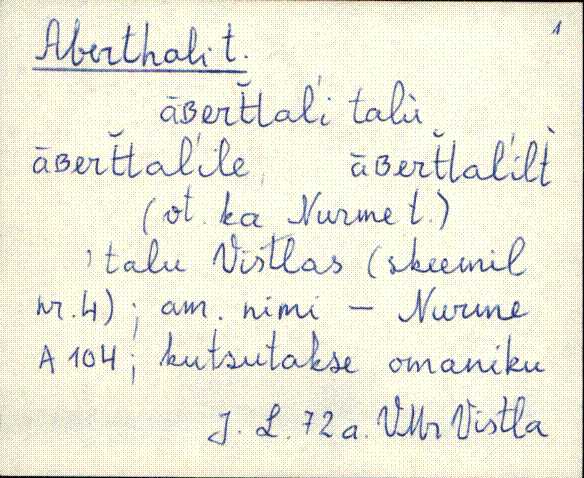 1
Aberthali t.
āʙert̆t̆al'i talù
āʙert̆t̆al'ile, āʙert̆t̆al'ilt̀
(vt. ka Nurme t.)
, talu Vistlas (skeemil
nr. 4); am. nimi – Nurme
A 104; kutsutakse omaniku
J. L. 72 a. VMr Vistla